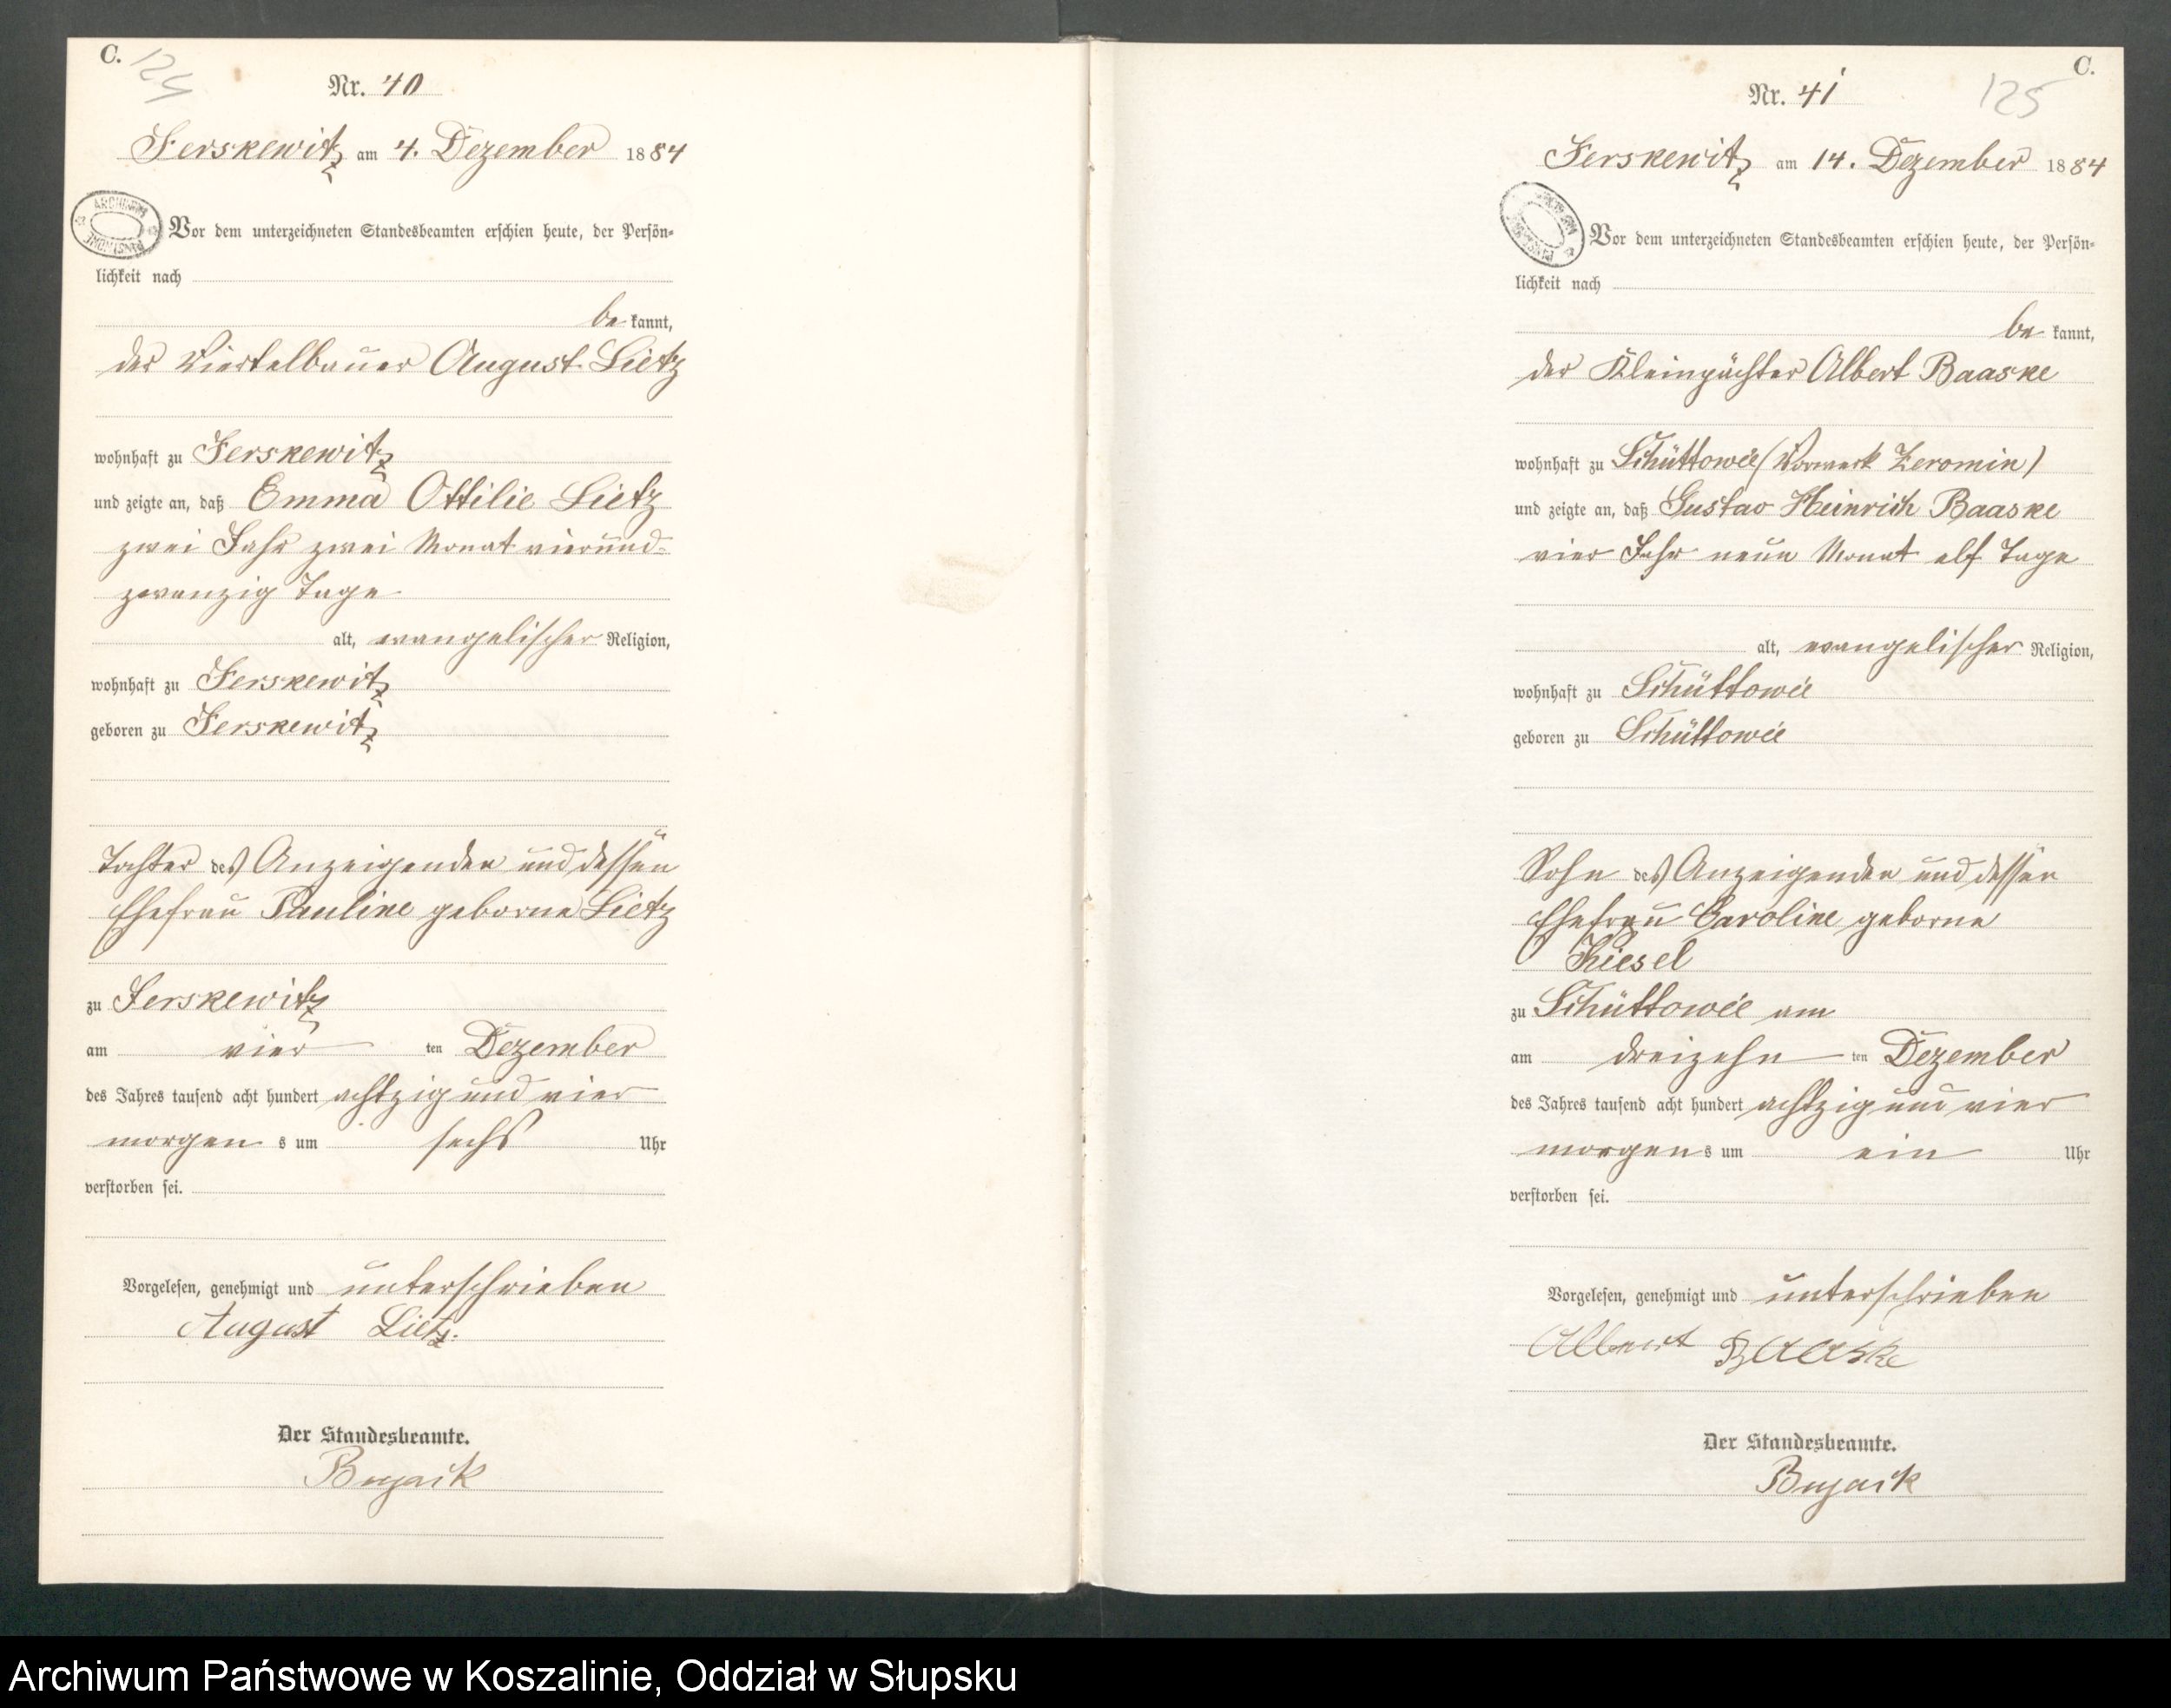 C.
124
Nr. 40
Ferskewitz am 4. Dezember 1884
Vor dem unterzeichneten Standesbeamten erschien heute, der Persön-
lichkeit nach
be kannt,
der Viertelbauer August Lietz
wohnhaft zu Ferskewitz
und zeigte an, daß Emma Ottilie Lietz
zwei Jahr zwei Monat vierund-
zwanzig Tage
alt, evangelischer Religion,
wohnhaft zu Ferskewitz
geboren zu Ferskewitz
Tochter des Anzeigenden und dessen
Ehefrau Pauline geborne Lietz
zu Ferskewitz
am vier ten Dezember
des Jahres tausend acht hundert achtzig und vier
morgen s um sechs Uhr
verstorben sei.
Vorgelesen, genehmigt und unterschrieben
August Lietz.
Der Standesbeamte.
Bujack
C.
125
Nr. 41
Ferskewitz am 14. Dezember 1884
ARCHIWUM PAŃSTWOWE
Vor dem unterzeichneten Standesbeamten erschien heute, der Persön-
lichkeit nach
be kannt,
der Kleinpächter Albert Baaske
wohnhaft zu Schüttowie (Vorwerk Zeromin)
und zeigte an, daß Gustav Heinrich Baaske
vier Jahr neun Monat elf Tage
alt, evangelischer Religion,
wohnhaft zu Schüttowie
geboren zu Schüttowie
Sohn des Anzeigenden und dessen
Ehefrau Caroline geborne
Kiesel
zu Schüttowie am
am dreizehn ten Dezember
des Jahres tausend acht hundert achtzig und vier
morgen s um ein Uhr
verstorben sei.
Vorgelesen, genehmigt und unterschrieben
Albert Baaske
Der Standesbeamte.
Bujack
Archiwum Państwowe w Koszalinie, Oddział w Słupsku